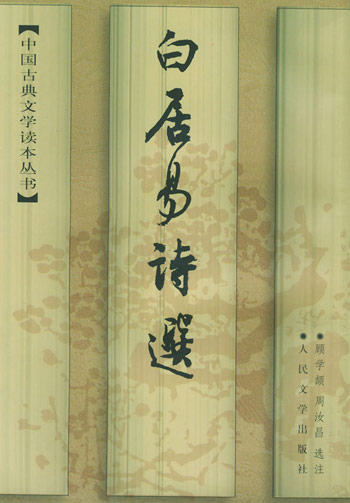 【中国古典文学读本丛书】
白居易詩選
●顾学颉 周汝昌 选注
●人民文学出版社